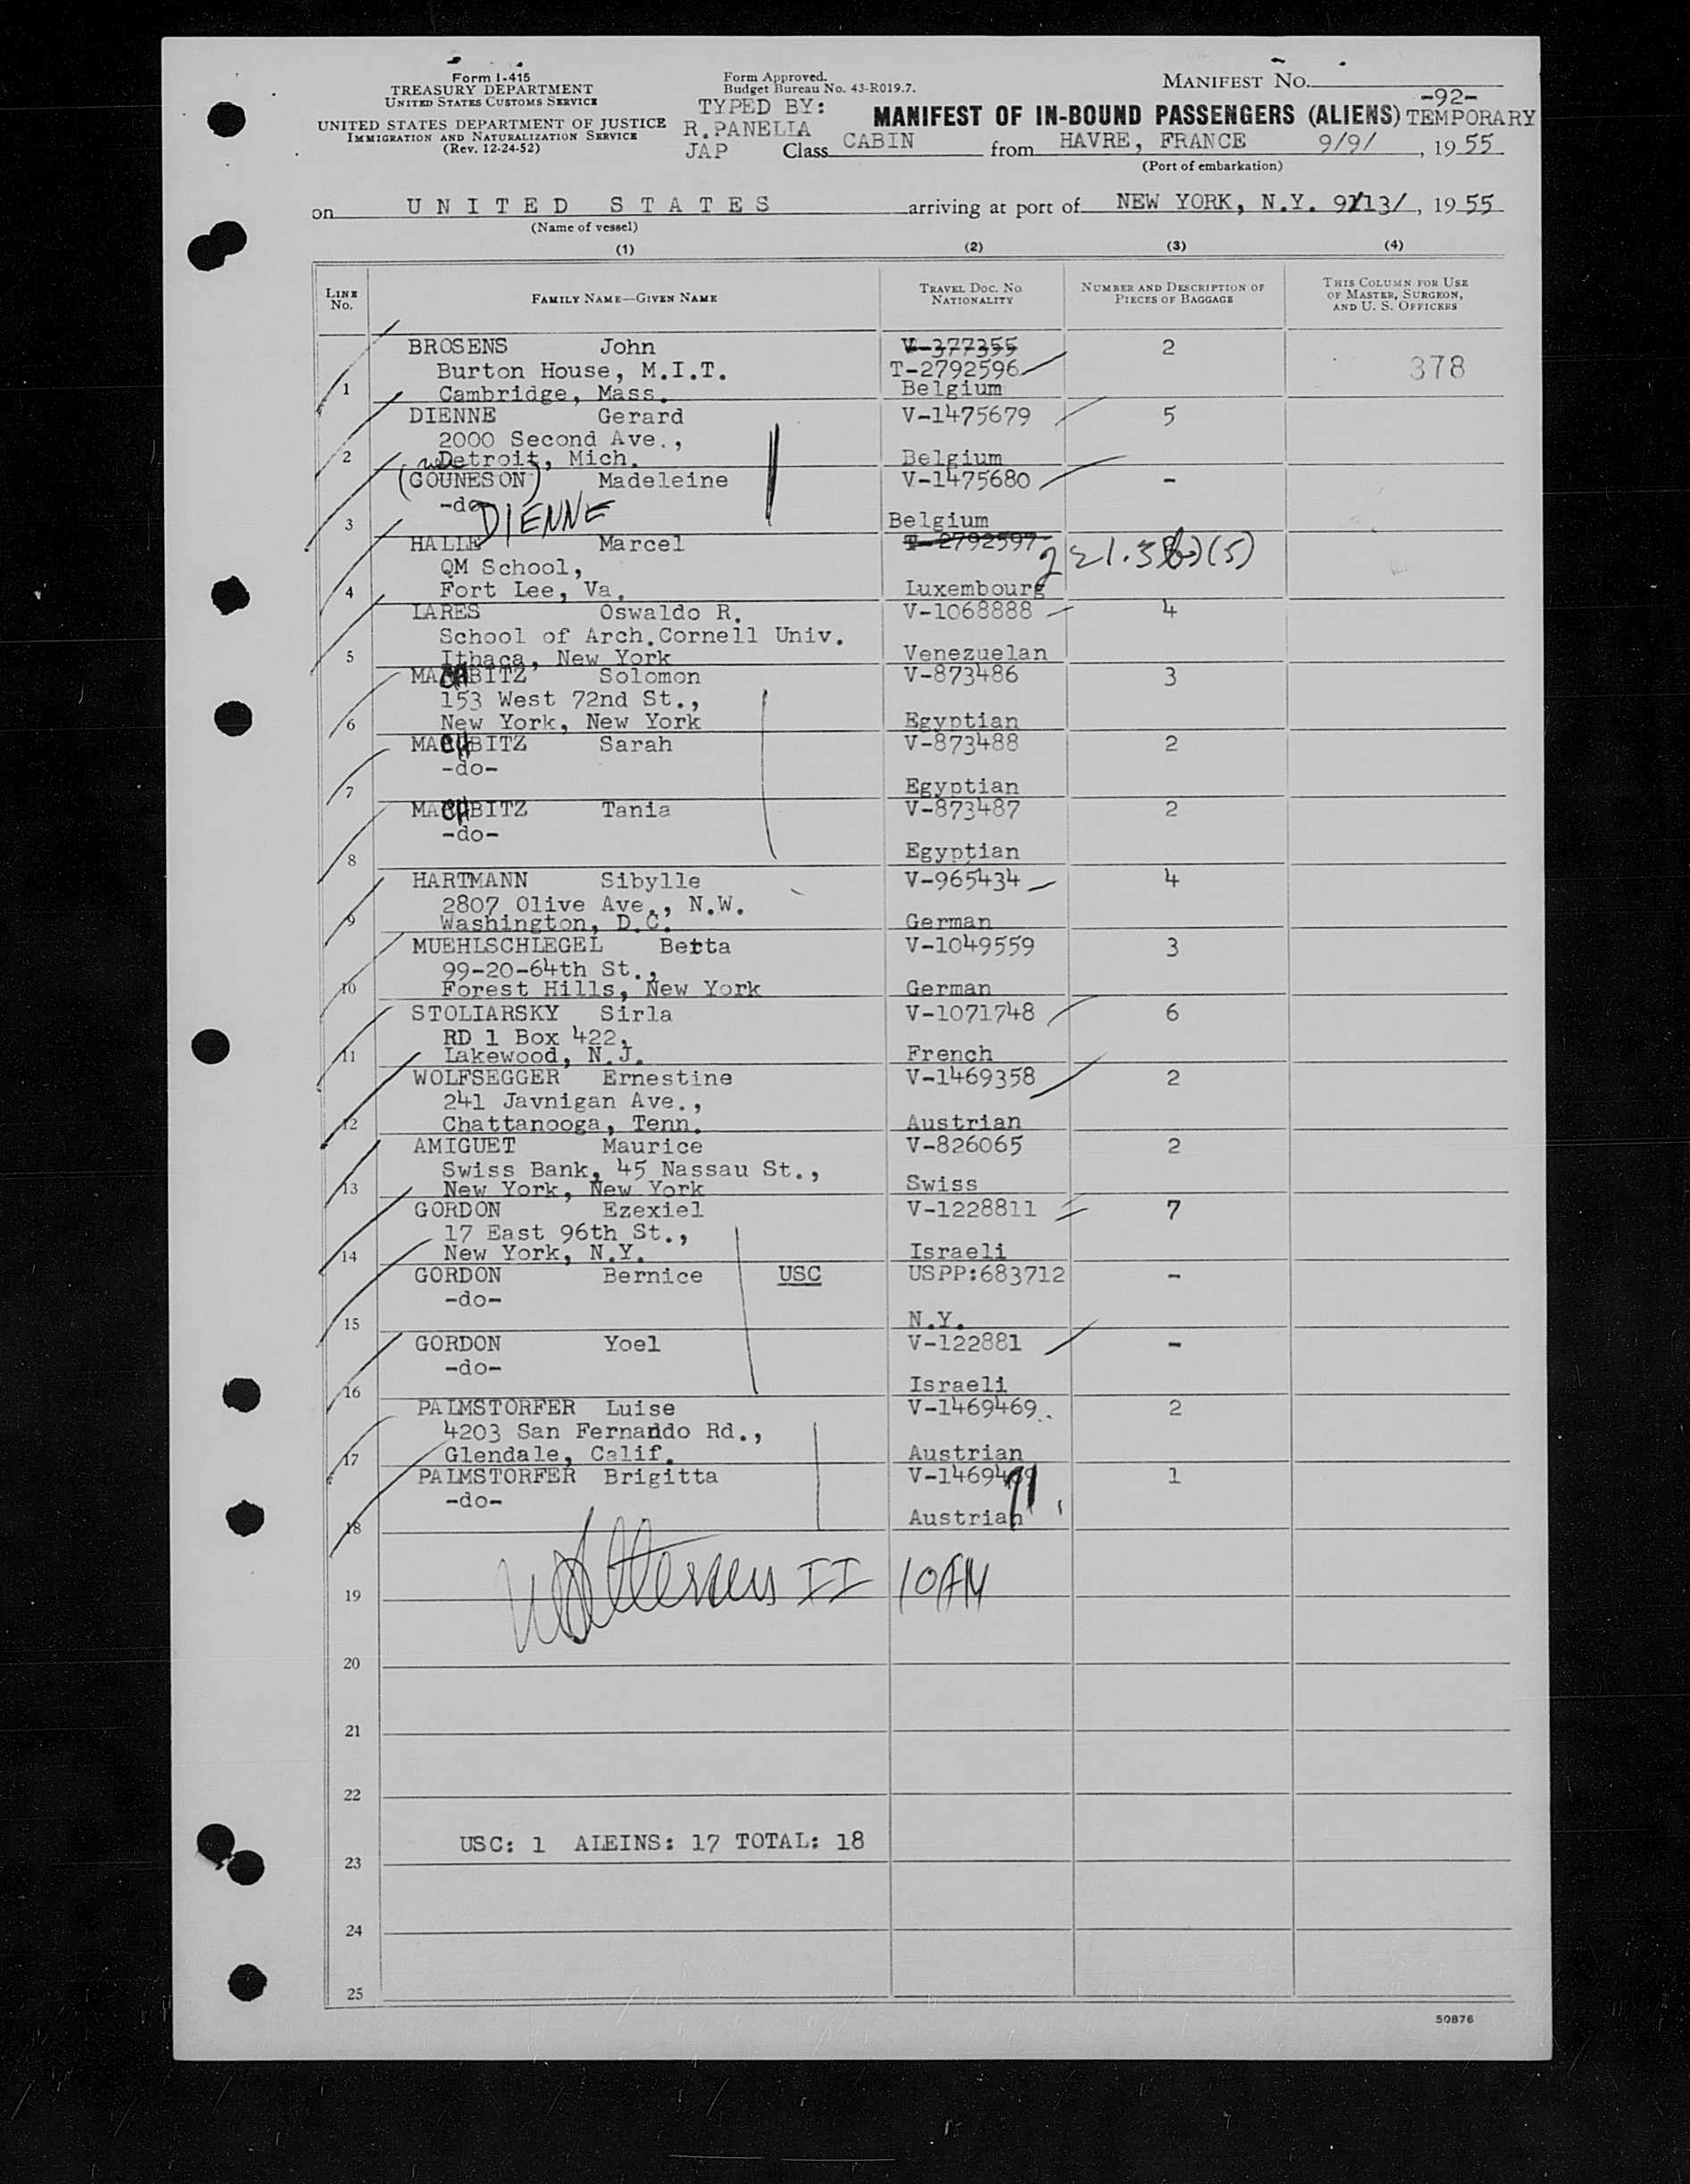 Form I-415
TREASURY DEPARTMENT
UNITED STATES CUSTOMS SERVICE
UNITED STATES DEPARTMENT OF JUSTICE
IMMIGRATION AND NATURALIZATION SERVICE
(Rev. 12-24-52)
Form Approved.
Budget Bureau No. 43-R019.7.
TYPED BY:
R.PANELLA
JAP
MANIFEST No.
-92-
MANIFEST OF IN-BOUND PASSENGERS (ALIENS) TEMPORARY
Class CABIN from HAVRE, FRANCE 9/9/, 1955
(Port of embarkation)
on UNITED STATES arriving at port of NEW YORK, N.Y. 9/13/, 1955
(Name of vessel)
(1) (2) (3) (4)
LINE No. FAMILY NAME—GIVEN NAME TRAVEL DOC. No. NATIONALITY NUMBER AND DESCRIPTION OF PIECES OF BAGGAGE THIS COLUMN FOR USE OF MASTER, SURGEON, AND U. S. OFFICERS
BROSENS John V-377355 2
Burton House, M.I.T. T-2792596 378
1 Cambridge, Mass. Belgium
DIENNE Gerard V-1475679 5
2000 Second Ave.,
2 Detroit, Mich. Belgium
(GOUNESON) Madeleine V-1475680 -
-do- DIENNE
3 Belgium
HALLE Marcel T-2792597
QM School,
4 Fort Lee, Va. Luxembourg
LARES Oswaldo R. V-1068888 4
School of Arch.Cornell Univ.
5 Ithaca, New York Venezuelan
MACHBITZ Solomon V-873486 3
153 West 72nd St.,
6 New York, New York Egyptian
MACHBITZ Sarah V-873488 2
-do-
7 Egyptian
MACHBITZ Tania V-873487 2
-do-
8 Egyptian
HARTMANN Sibylle V-965434 4
2807 Olive Ave., N.W.
9 Washington, D.C. German
MUEHLSCHLEGEL Betta V-1049559 3
99-20-64th St.,
10 Forest Hills, New York German
STOLIARSKY Sirla V-1071748 6
RD 1 Box 422,
11 Lakewood, N.J. French
WOLFSEGGER Ernestine V-1469358 2
241 Javnigan Ave.,
12 Chattanooga, Tenn. Austrian
AMIGUET Maurice V-826065 2
Swiss Bank, 45 Nassau St.,
13 New York, New York Swiss
GORDON Ezexiel V-1228811 7
17 East 96th St.,
14 New York, N.Y. Israeli
GORDON Bernice USC USPP:683712 -
-do-
15 N.Y.
GORDON Yoel V-122881 -
-do-
16 Israeli
PALMSTORFER Luise V-1469469 2
4203 San Fernando Rd.,
17 Glendale, Calif. Austrian
PALMSTORFER Brigitta 1
-do-
18 Austrian
19 II 10AM
20
21
22
USC: 1 ALEINS: 17 TOTAL: 18
23
24
25
50876